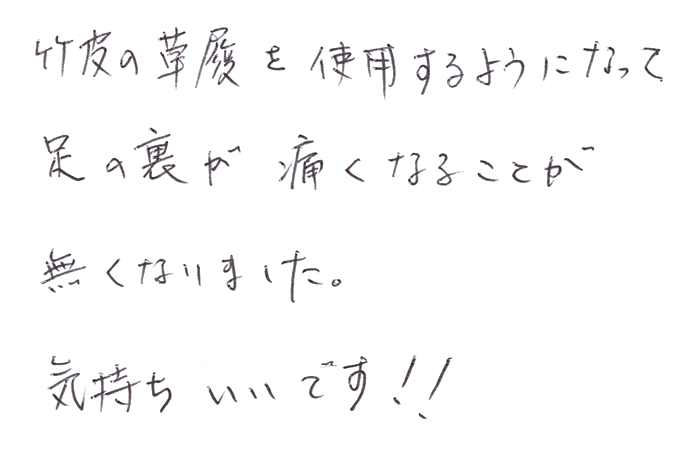 竹皮の草履を使用するようになって
足の裏が痛くなることが
無くなりました。
気持ちいいです!!